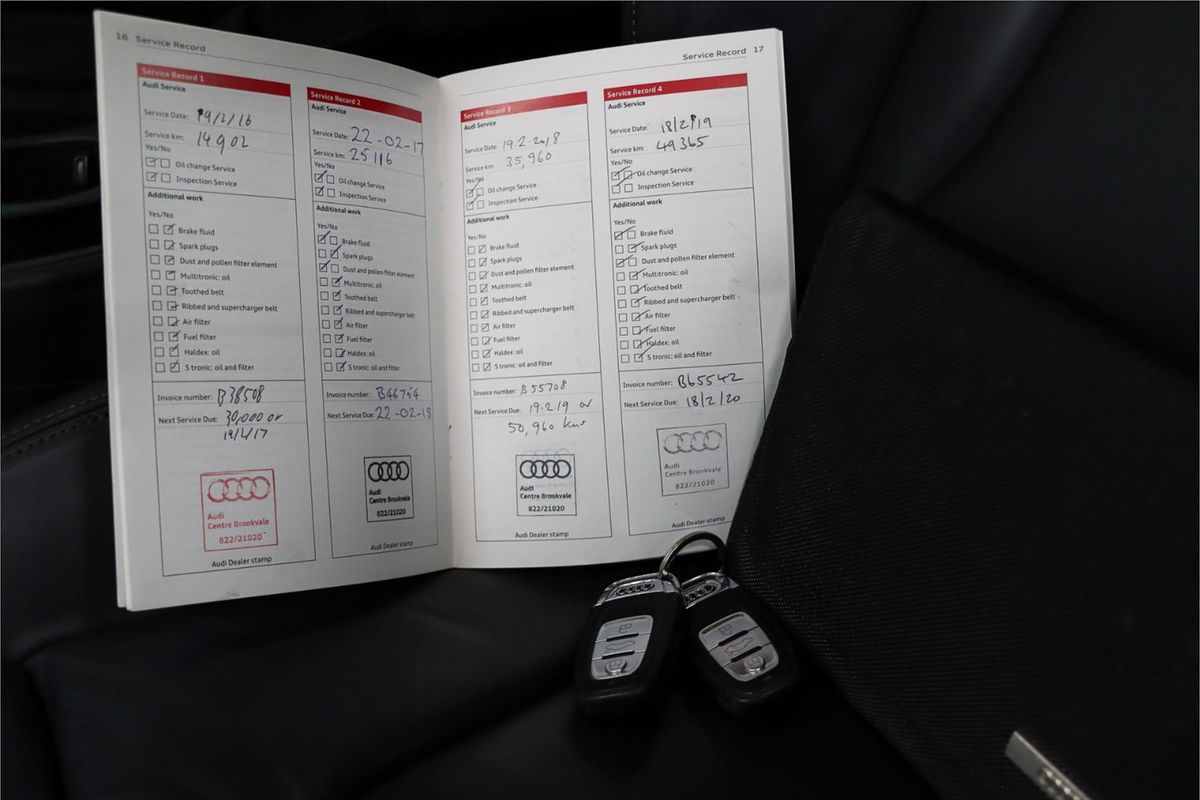 16 Service Record
Service Record 1
Audi Service
Service Date: 19/2/16
Service km: 14902
Yes/No
Oil change Service
Inspection Service
Additional work
Yes/No
Brake fluid
Spark plugs
Dust and pollen filter element
Multitronic: oil
Toothed belt
Ribbed and supercharger belt
Air filter
Fuel filter
Haldex: oil
S tronic: oil and filter
Invoice number: B38508
Next Service Due: 30,000 or
19/4/17
Audi
Centre Brookvale
822/21020
Audi Dealer stamp
Service Record 2
Audi Service
Service Date: 22-02-17
Service km: 25116
Yes/No
Oil change Service
Inspection Service
Additional work
Yes/No
Brake fluid
Spark plugs
Dust and pollen filter element
Multitronic: oil
Toothed belt
Ribbed and supercharger belt
Air filter
Fuel filter
Haldex: oil
S tronic: oil and filter
Invoice number:
Next Service Due: 22-02-18
Audi
Centre Brookvale
822/21020
Audi Dealer stamp
Service Record 17
Service Record 3
Audi Service
Service Date: 19.2.2018
Service km: 35,960
Yes/No
Oil change Service
Inspection Service
Additional work
Yes/No
Brake fluid
Spark plugs
Dust and pollen filter element
Multitronic: oil
Toothed belt
Ribbed and supercharger belt
Air filter
Fuel filter
Haldex: oil
S tronic: oil and filter
Invoice number: B55708
Next Service Due: 19.2.19 or
50,960 kms
Audi
Centre Brookvale
822/21020
Audi Dealer stamp
Service Record 4
Audi Service
Service Date: 18/2/19
Service km: 49365
Yes/No
Oil change Service
Inspection Service
Additional work
Yes/No
Brake fluid
Spark plugs
Dust and pollen filter element
Multitronic: oil
Toothed belt
Ribbed and supercharger belt
Air filter
Fuel filter
Haldex: oil
S tronic: oil and filter
Invoice number: B65542
Next Service Due: 18/2/20
Audi
Centre Brookvale
822/21020
Audi Dealer stamp